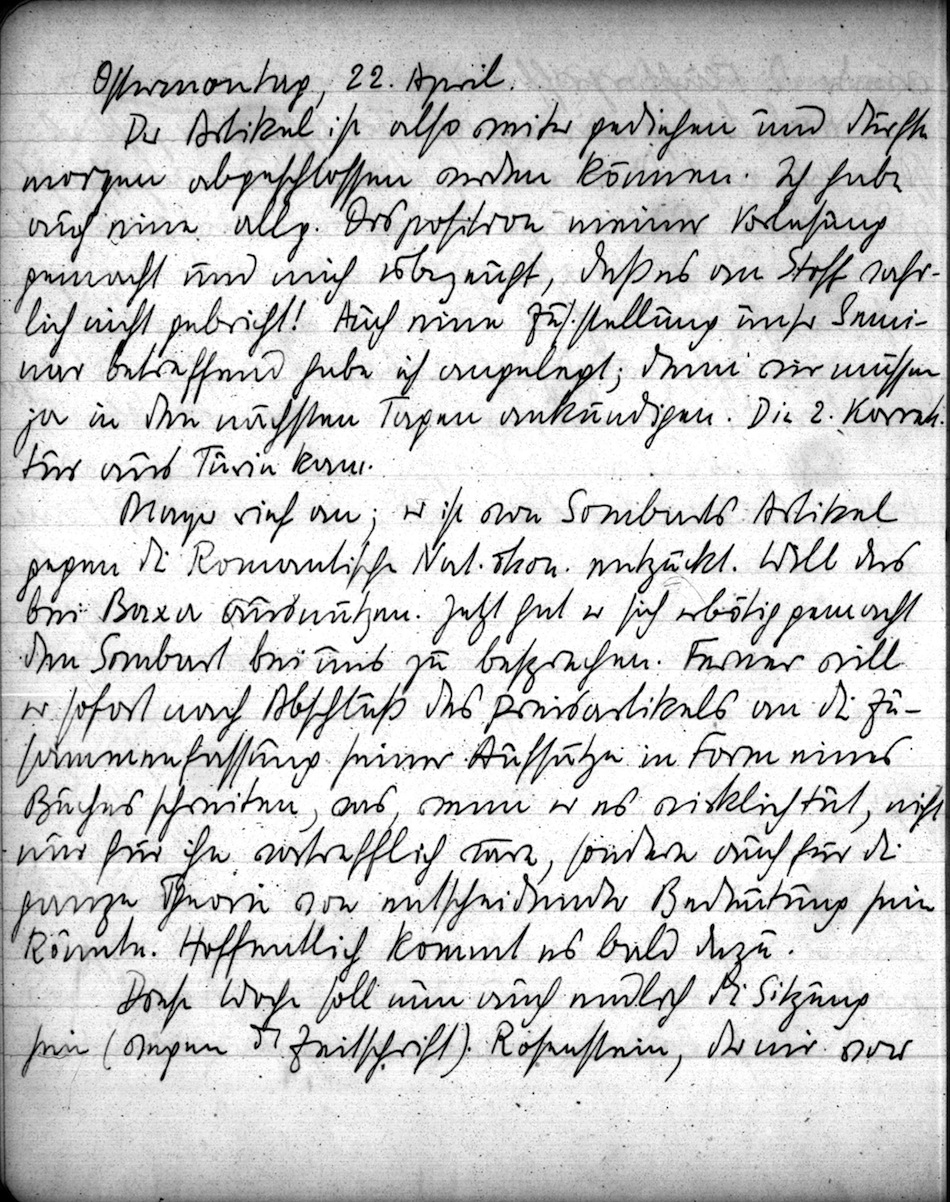 Ostermontag, 22. April.
Der Artikel ist also weiter gediehen und dürfte
morgen abgeschlossen werden können. Ich habe
auch eine allg. Disposition meiner Vorlesung
gemacht und mich überzeugt, daß es an Stoff wahr-
lich nicht gebricht! Auch eine Zus.stellung unser Semi-
nar betreffend habe ich angelegt; denn wir müssen
ja in den nächsten Tagen ankündigen. Die 2. Korrek-
tur aus Turin kam.
Mayer rief an; er ist von Sombarts Artikel
gegen die Romantische Nat.ökon. entzückt. Will das
bei Baxa ausnützen. Jetzt hat er sich erbötig gemacht
den Sombart bei uns zu besprechen. Ferner will
er sofort nach Abschluß des Preisartikels an die Zu-
sammenfassung seiner Aufsätze in Form eines
Buches schreiten, was, wenn er es wirklich tut, nicht
nur für ihn vortrefflich wäre, sondern auch für die
ganze Theorie von entscheidender Bedeutung sein
könnte. Hoffentlich kommt es bald dazu.
Diese Woche soll nun auch endlich die Sitzung
sein (wegen der Zeitschrift). Rosenstein, der mir vor